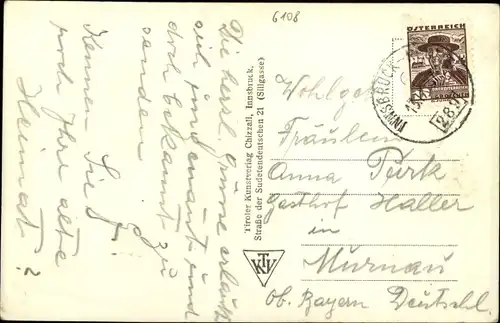 6108
Die herzl. Grüsse erlaubt
sich und
doch bekannt zu
senden
Kennen Sie
noch Ihre alte
Heimat?
Tiroler Kunstverlag Chizzali, Innsbruck,
Straße der Sudetendeutschen 21 (Sillgasse)
KTV
ÖSTERREICH
INNSBRUCK
Wohlgeb.
Fräulein
Anna Türk
Gasthof Haller
in
Murnau
Ob. Bayern Deutschl.